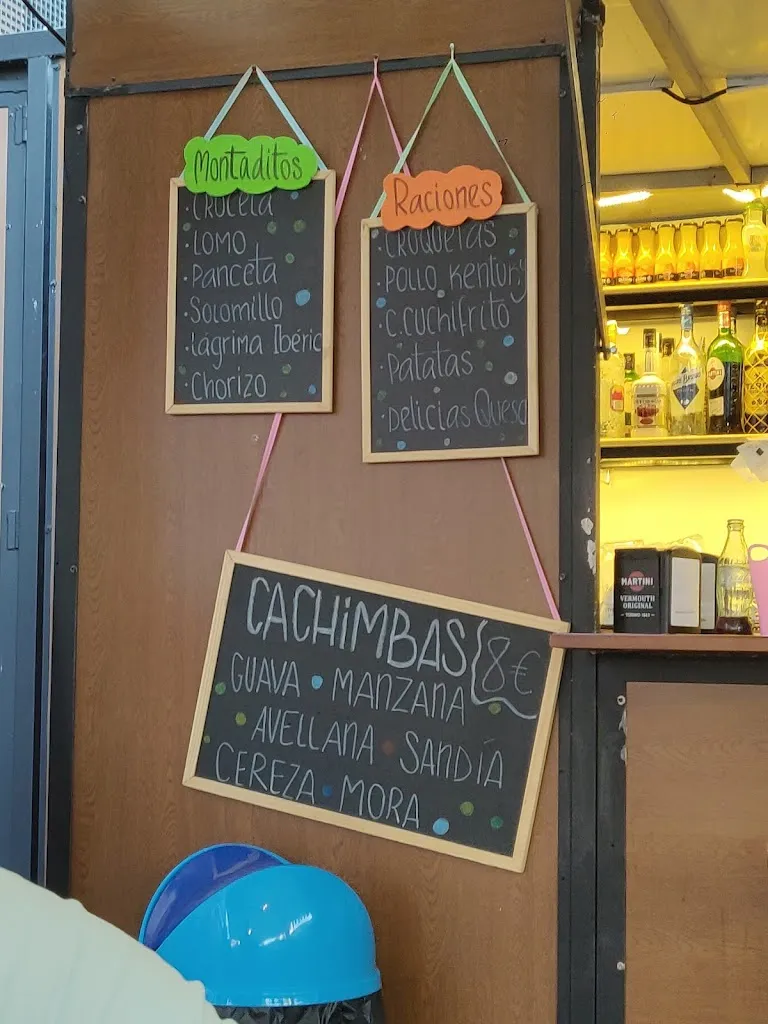 Montaditos
· CROCETA
· LOMO
· Panceta
· SOLOMILLO
· Lágrima Ibéric
· Chorizo
Raciones
· CROQUETAS
· POLLO Kentury
· C. CUCHIFRITO
· PATATAS
· Delicias Queso
CACHIMBAS 8€
GUAVA • MANZANA
AVELLANA • SANDÍA
CEREZA • MORA
MARTINI
VERMOUTH
ORIGINAL